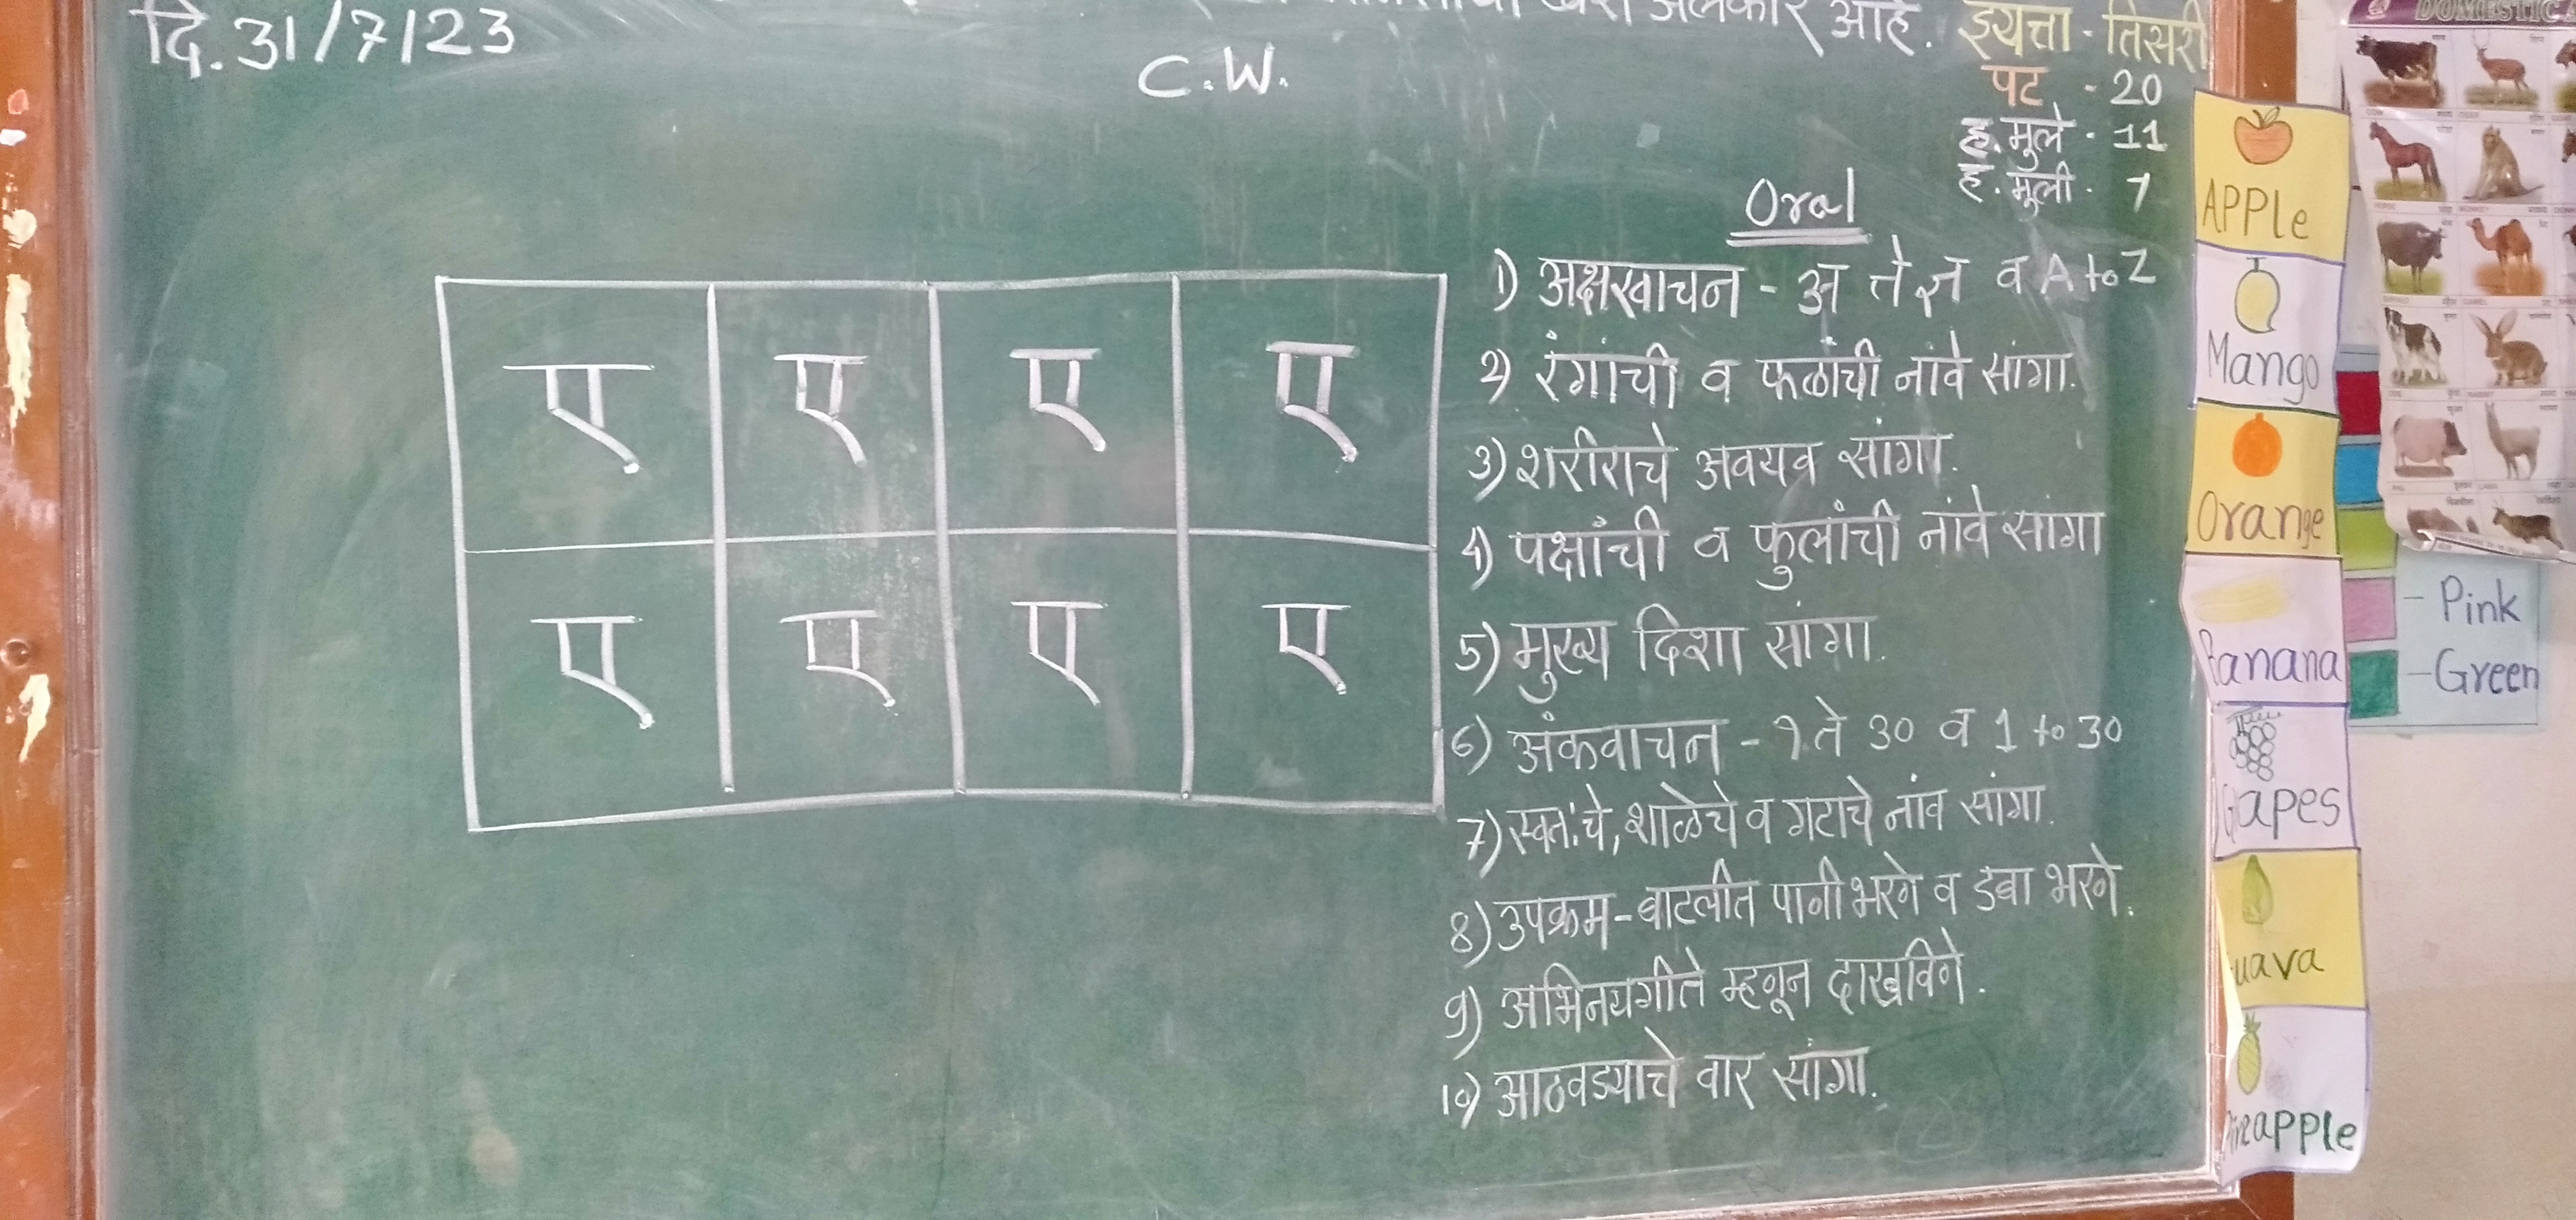 अलंकार आहे.
दि. 31/7/23
C.W.
इयत्ता - तिसरी
पट - 20
ह. मुले - 11
ह. मुली - 7
ए ए ए ए
ए ए ए ए
Oral
1) अक्षरवाचन - अ ते ज्ञ व A to Z
2) रंगांची व फळांची नांवे सांगा.
3) शरीराचे अवयव सांगा.
4) पक्षांची व फुलांची नांवे सांगा
5) मुख्य दिशा सांगा.
6) अंकवाचन - १ ते ३० व 1 to 30
7) स्वतःचे, शाळेचे व गटाचे नांव सांगा.
8) उपक्रम - बाटलीत पाणी भरणे व डबा भरणे.
9) अभिनयगीते म्हणून दाखविणे.
10) आठवड्याचे वार सांगा.
APPle
Mango
Orange
Banana
Gapes
uava
Pineapple
DOMESTIC
- Pink
- Green